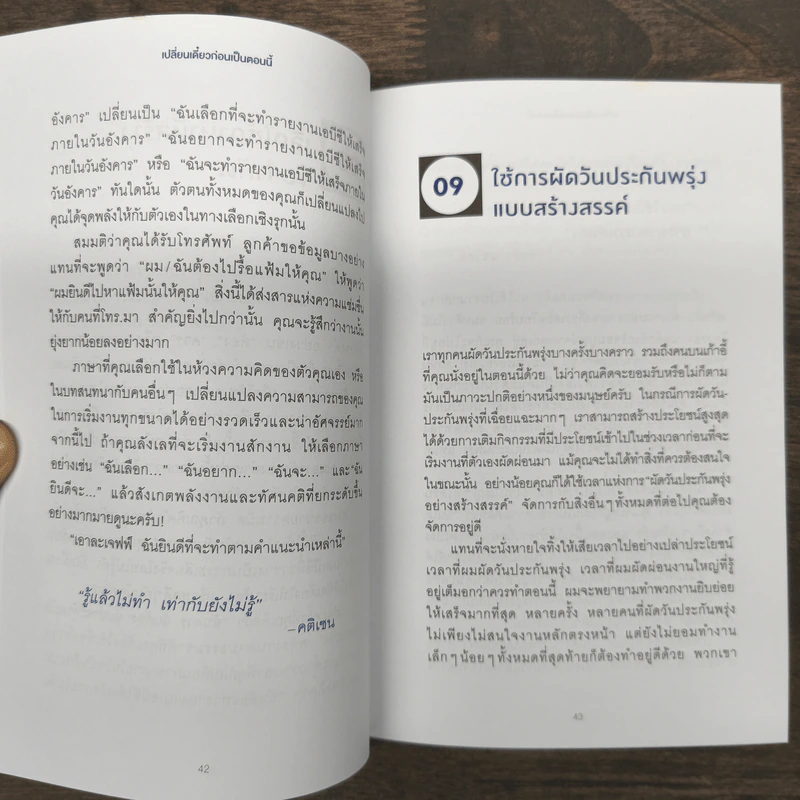 เปลี่ยนเดี๋ยวก่อนเป็นตอนนี้
อังคาร” เปลี่ยนเป็น “ฉันเลือกที่จะทำรายงานเอบีซีให้เสร็จ
ภายในวันอังคาร” “ฉันอยากจะทำรายงานเอบีซีให้เสร็จ
ภายในวันอังคาร” หรือ “ฉันจะทำรายงานเอบีซีให้เสร็จภายใน
วันอังคาร” ทันใดนั้น ตัวตนทั้งหมดของคุณก็เปลี่ยนแปลงไป
คุณได้จุดพลังให้กับตัวเองในทางเลือกเชิงรุกนั้น
สมมติว่าคุณได้รับโทรศัพท์ ลูกค้าขอข้อมูลบางอย่าง
แทนที่จะพูดว่า “ผม/ฉันต้องไปรื้อแฟ้มให้คุณ” ให้พูดว่า
“ผมยินดีไปหาแฟ้มนั้นให้คุณ” สิ่งนี้ได้ส่งสารแห่งความแช่มชื่น
ให้กับคนที่โทร.มา สำคัญยิ่งไปกว่านั้น คุณจะรู้สึกว่างานนั้น
ยุ่งยากน้อยลงอย่างมาก
ภาษาที่คุณเลือกใช้ในห้วงความคิดของตัวคุณเอง หรือ
ในบทสนทนากับคนอื่นๆ เปลี่ยนแปลงความสามารถของคุณ
ในการเริ่มงานทุกขนาดได้อย่างรวดเร็วและน่าอัศจรรย์มาก
จากนี้ไป ถ้าคุณลังเลที่จะเริ่มงานสักงาน ให้เลือกภาษา
อย่างเช่น “ฉันเลือก...” “ฉันอยาก...” “ฉันจะ...” และ “ฉัน
ยินดีจะ...” แล้วสังเกตพลังงานและทัศนคติที่ยกระดับขึ้น
อย่างมากมายดูนะครับ!
“เอาละเจฟฟ์ ฉันยินดีที่จะทำตามคำแนะนำเหล่านี้”
“รู้แล้วไม่ทำ เท่ากับยังไม่รู้”
—คติเซน
42
09 ใช้การผัดวันประกันพรุ่ง
แบบสร้างสรรค์
เราทุกคนผัดวันประกันพรุ่งบางครั้งบางคราว รวมถึงคนบนเก้าอี้
ที่คุณนั่งอยู่ในตอนนี้ด้วย ไม่ว่าคุณคิดจะยอมรับหรือไม่ก็ตาม
มันเป็นภาวะปกติอย่างหนึ่งของมนุษย์ครับ ในกรณีการผัดวัน-
ประกันพรุ่งที่เฉื่อยแฉะมากๆ เราสามารถสร้างประโยชน์สูงสุด
ได้ด้วยการเติมกิจกรรมที่มีประโยชน์เข้าไปในช่วงเวลาก่อนที่จะ
เริ่มงานที่ตัวเองผัดผ่อนมา แม้คุณจะไม่ได้ทำสิ่งที่ควรต้องสนใจ
ในขณะนั้น อย่างน้อยคุณก็ได้ใช้เวลาแห่งการ“ผัดวันประกันพรุ่ง
อย่างสร้างสรรค์” จัดการกับสิ่งอื่นๆทั้งหมดที่ต่อไปคุณต้อง
จัดการอยู่ดี
แทนที่จะนั่งหายใจทิ้งให้เสียเวลาไปอย่างเปล่าประโยชน์
เวลาที่ผมผัดวันประกันพรุ่ง เวลาที่ผมผัดผ่อนงานใหญ่ที่รู้
อยู่เต็มอกว่าควรทำตอนนี้ ผมจะพยายามทำพวกงานยิบย่อย
ให้เสร็จมากที่สุด หลายครั้ง หลายคนที่ผัดวันประกันพรุ่ง
ไม่เพียงไม่สนใจงานหลักตรงหน้า แต่ยังไม่ยอมทำงาน
เล็กๆน้อยๆทั้งหมดที่สุดท้ายก็ต้องทำอยู่ดีด้วย พวกเขา
43